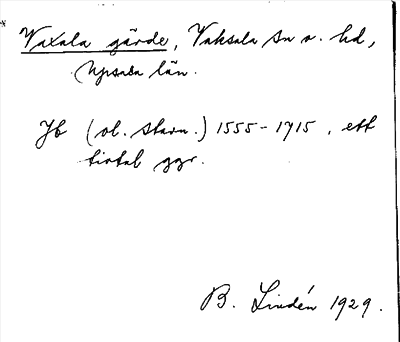 Vaxala gärde, Vaksala sn o. hd,
Upsala län.
Jb (ol. stavn.) 1555-1715, ett
tiotal ggr.
B. Lindén 1929.